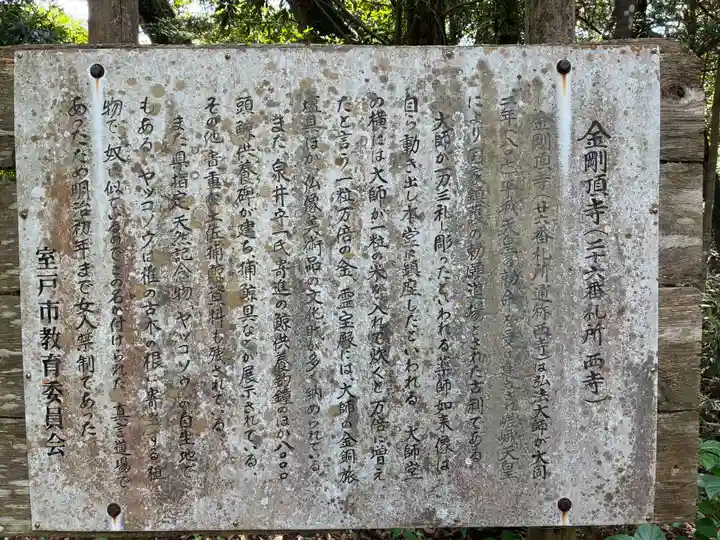 金剛頂寺(二十六番札所 西寺)
金剛頂寺(廿六番札所通称西寺)は弘法大師が大同
二年(八 平城天皇の勅命を 嵯峨天皇
により国家鎮護の勅願道場とされた古刹である
大師が刀三礼し彫ったといわれる薬師如来像は
自ら動き出し本堂に鎮座したといわれる 大師堂
の横には大師が一粒の米を入れて炊くと万倍に増え
たと言う一粒万倍の釜、霊宝殿には、大師の金銅旅
壇具ほか仏像と美術品の文化財が多く納められている
また泉井守一氏寄進の鯨供養梵鐘のほか八〇〇〇
頭鯨供養碑が建ち、捕鯨具などが展示されている。
その他貴重な土佐捕鯨資料も残されている。
また県指定天然記念物、ヤッコソウの自生地で
もある、ヤッコソウは椎の古木の根に寄生する植
物で、奴に似ているのでこの名が付けられた 真言道場で
あったため明治初年まで女人禁制であった
室戸市教育委員会